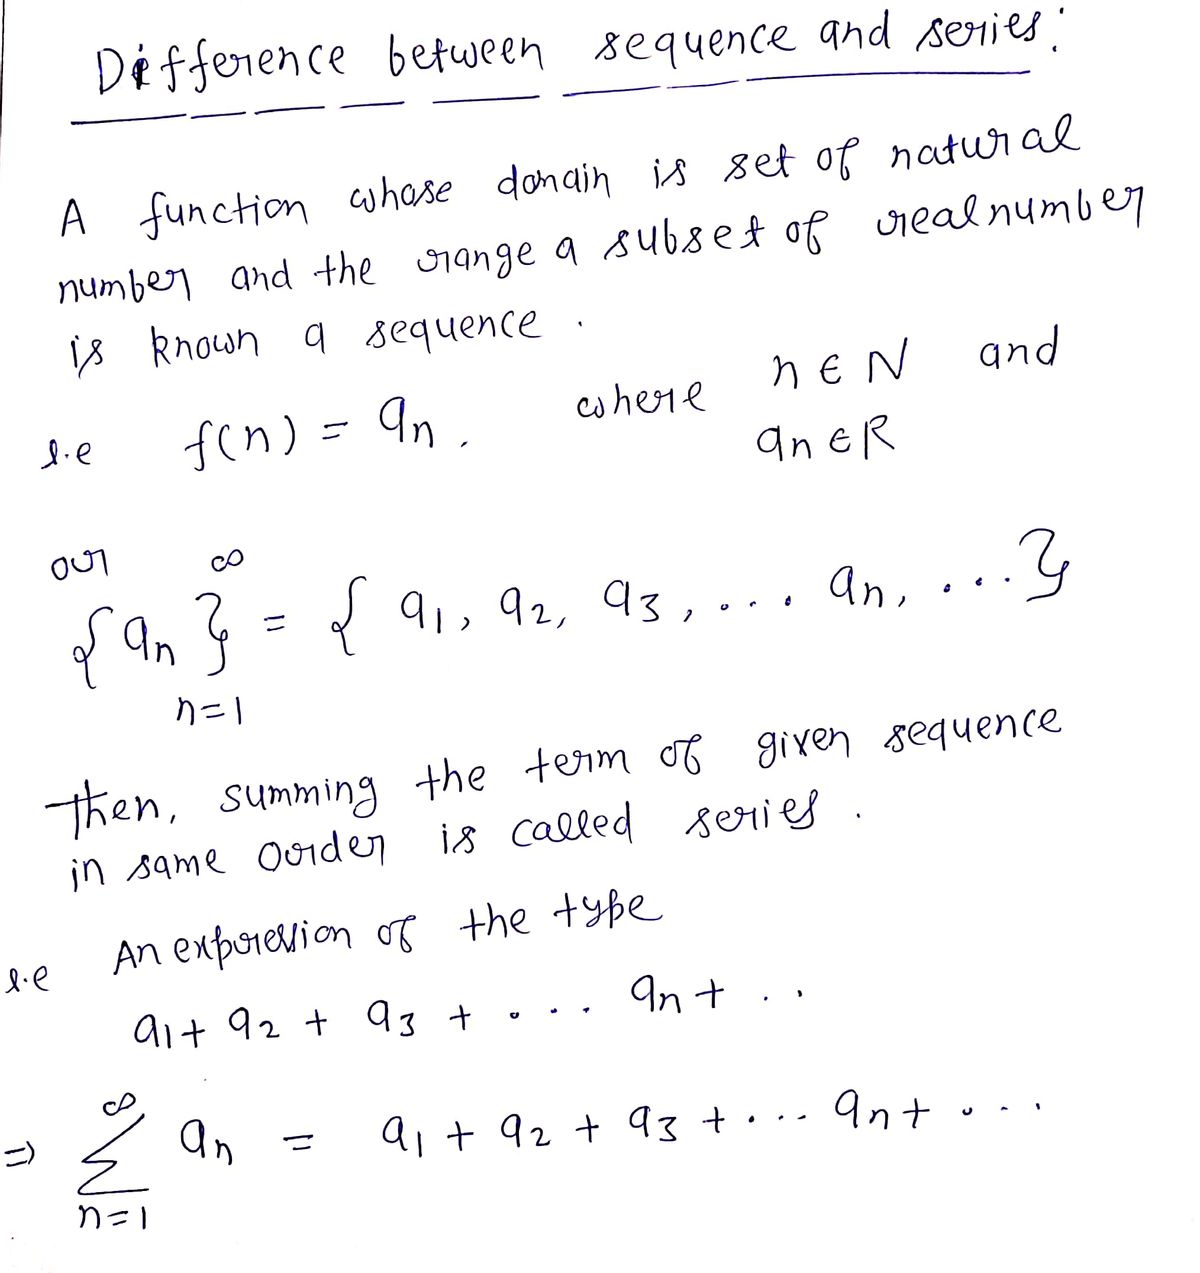 Difference between sequence and series:
A function whose domain is set of natural
number and the range a subset of real number
is known a sequence.
i.e f(n) = an. where n ∈ N and
an ∈ R
our
{an}∞n=1 = { a1, a2, a3, .... an, ....}
Then, summing the term of given sequence
in same oorder is called series.
i.e An expression of the type
a1 + a2 + a3 + .... an + ..
⇒ ∞∑n=1 an = a1 + a2 + a3 + .... an + ....